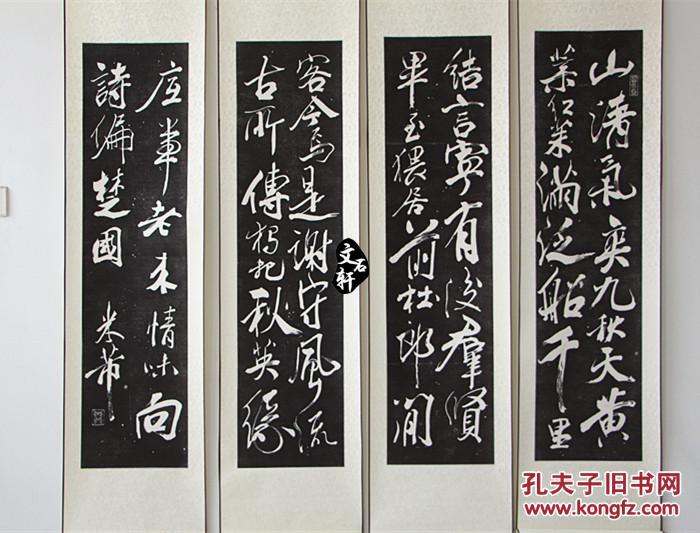 山清氣爽九秋天黃
菊紅茱滿泛船千里
結言寧有後羣賢
畢至猥居前杜郎閒
客今焉是謝守風流
古所傳獨把秋英緣
底事老來情味向
詩偏楚國 米芾
文石轩
孔夫子旧书网
www.kongfz.com